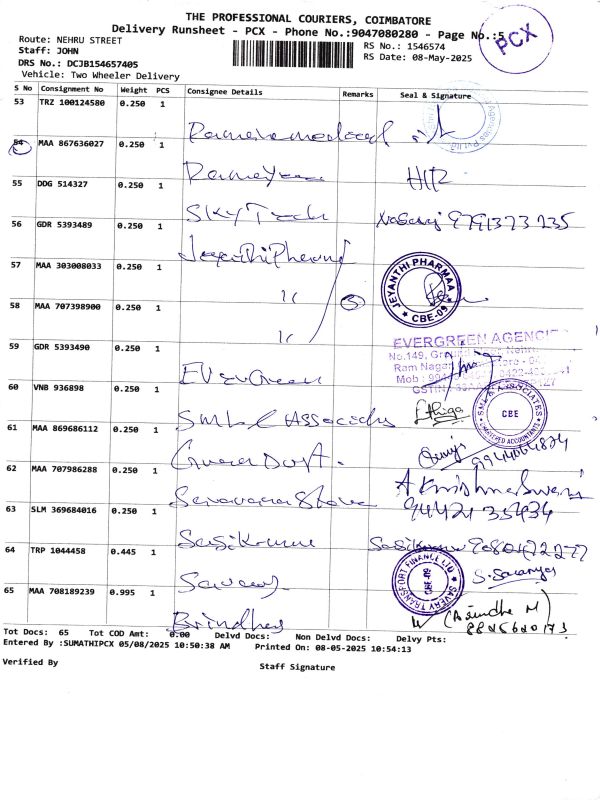 THE PROFESSIONAL COURIERS, COIMBATORE
Delivery Runsheet - PCX - Phone No.:9047080280 - Page No.:5
PCX
Route: NEHRU STREET
RS No.: 1546574
Staff: JOHN
RS Date: 08-May-2025
DRS No.: DCJB154657405
Vehicle: Two Wheeler Delivery
S No Consignment No Weight PCS Consignee Details Remarks Seal & Signature
53 TRZ 100124580 0.250 1
54 MAA 867636027 0.250 1
HR
55 DDG 514327 0.250 1
Sky Tech
9791373235
56 GDR 5393489 0.250 1
Jeyanthi Pharma
JEYANTHI PHARMAA
CBE-09
57 MAA 303008033 0.250 1
11
3
58 MAA 707398900 0.250 1
11
59 GDR 5393490 0.250 1
EverGreen
EVERGREEN AGENCIE
60 VNB 936898 0.250 1
SML & Associates
SML & ASSOCIATES
CBE
CHARTERED ACCOUNTANTS
61 MAA 869686112 0.250 1
62 MAA 707986288 0.250 1
Saravana Stores
94421 35434
63 SLM 369684016 0.250 1
Sasikumar
Sasikumar
64 TRP 1044458 0.445 1
SAVEAY TRANSPORT FINANCE LTD
CBE-09
S. Saranya
65 MAA 708189239 0.995 1
Brindha
8825620173
Tot Docs: 65 Tot COD Amt: 0.00 Delvd Docs: Non Delvd Docs: Delvy Pts:
Entered By :SUMATHIPCX 05/08/2025 10:50:38 AM Printed On: 08-05-2025 10:54:13
Verified By
Staff Signature